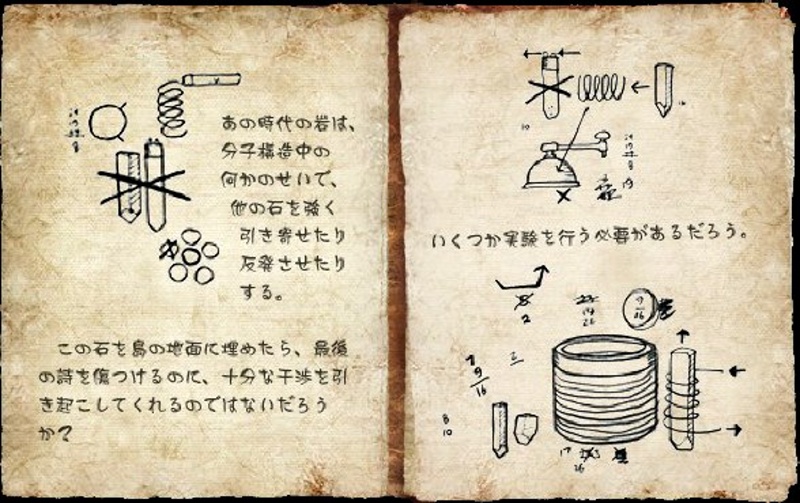 あの時代の岩は、
分子構造中の
何かのせいで、
他の石を強く
引き寄せたり
反発させたり
する。
この石を島の地面に埋めたら、最後
の詩を傷つけるのに、十分な干渉を引
き起こしてくれるのではないだろう
か?
10
いくつか実験を行う必要があるだろう。
2
9
26
9
16
8
10
17
26